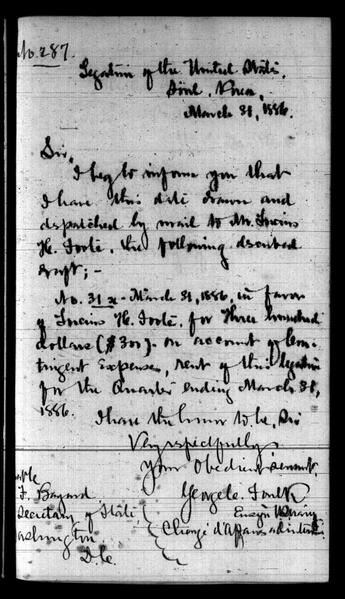 No. 287.
Legation of the United States,
Söul, Korea,
March 31, 1886.
Sir,
I beg to inform you that
I have this date drawn and
dispatched by mail to Mr. Lucius
H. Foote, the following described
draft; -
No. 31 x - March 31, 1886, in favor
of Lucius H. Foote, for Three hundred
dollars ($300) - on account of Con-
tingent Expenses, rent of this legation
for the Quarter ending March 31,
1886.
I have the honor to be, Sir
Very respectfully,
Your Obedient servant,
George C. Foulk
Ensign U.S. Navy
Chargé d'Affaires ad interim
Bayard
Secretary of State
ashington
D.C.